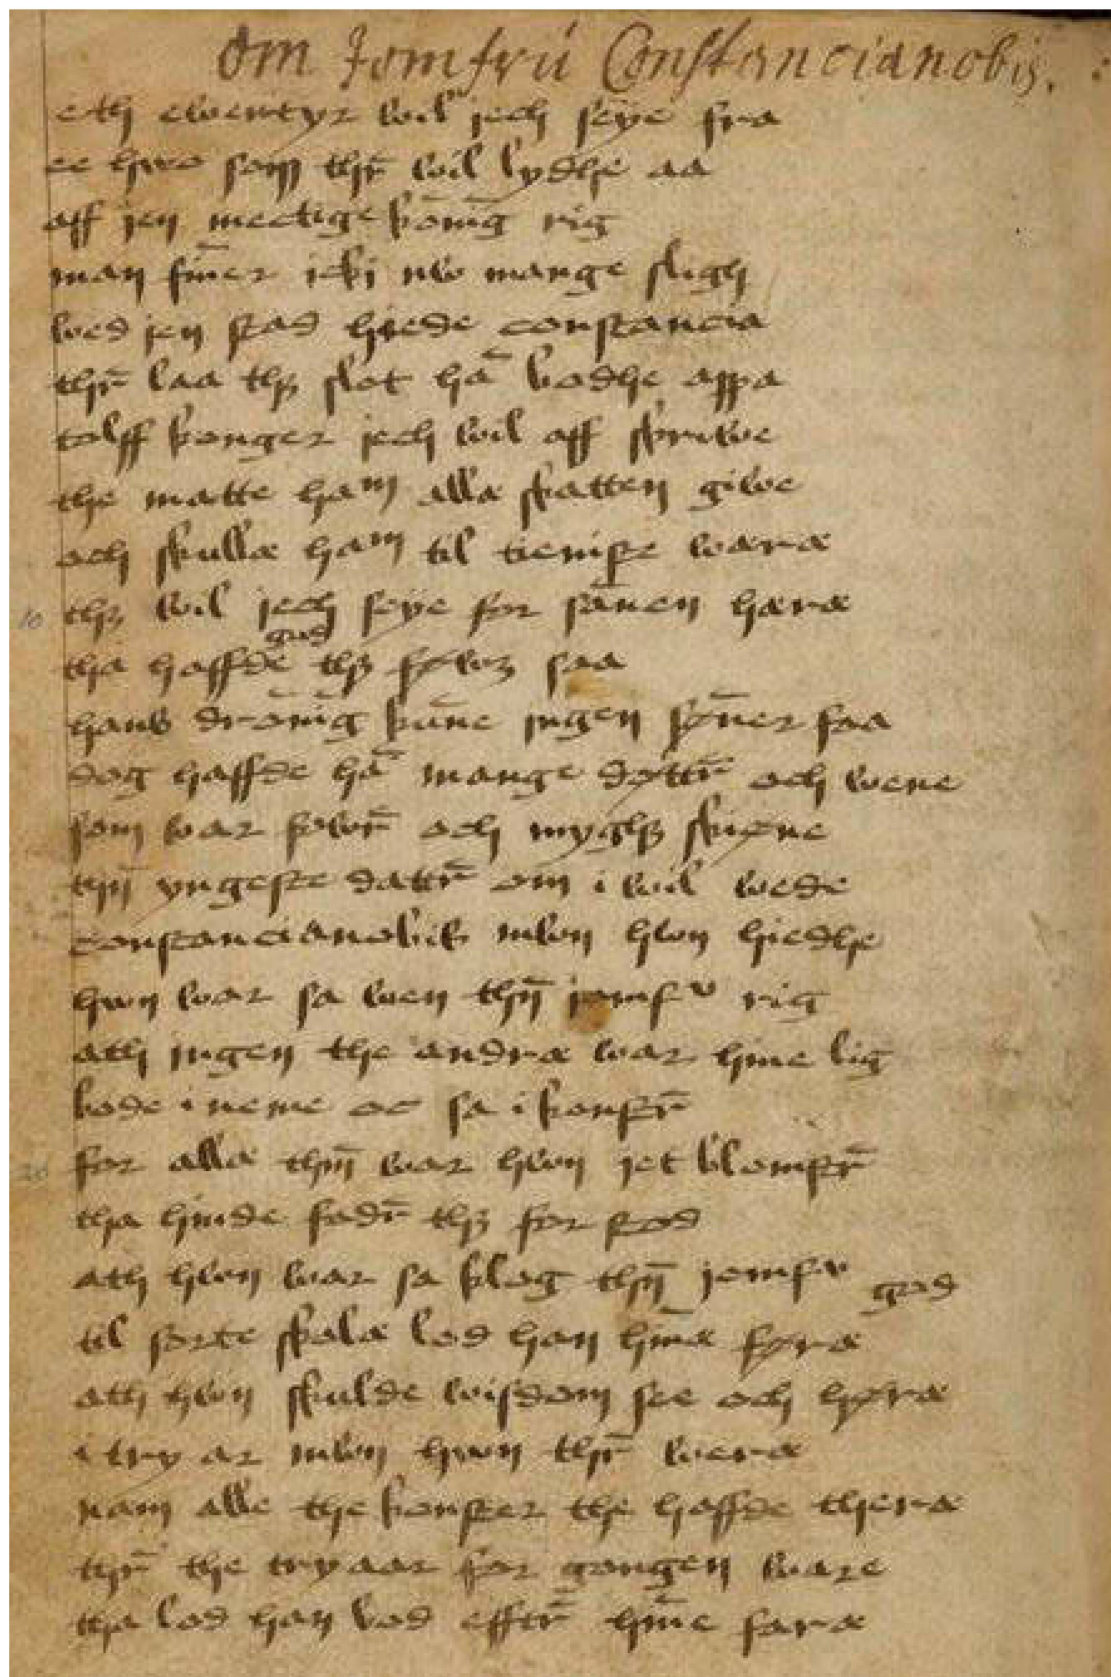 Om Jomfrü Constancianobis.
eth ewentyr wil iech seye fra
ee hwo som thr̄ wil lydhe aa
aff ien mectige kōnīg rig
man fīner icki nw mange sligh
wed ien stad hiede constancia
thr̄ laa thꝫ slot hā bodhe appa
tolff konger iech wil aff skriwe
the matte haᵐ alla skatten giwe
och skulla haᵐ til tienist wara
10 thꝫ wil iech seye for sānen hæra
tha haffde gud thꝫ føwꝫ saa
hans drōnīg kūne ingen sø̄ner faa
dog haffde hā mange døttr̄ och wene
som war fawr̄ och myghꝫ skiøne
thn̄ yngeste dattr̄ om i wil wede
constancianobis mwn hwn hiedhe
hwn war sa wen thn̄ iomfᵛ rig
ath ingen the andræ war hīne lig
bode i neme oc sa i konstr̄
20 for alla thm̄ war hwn iet blomstr̄
tha hinde fadr̄ thꝫ for stod
ath hwn war sa klog thn̄ iomfᵛ god
til sorte skola lod han hīna føra
ath hwn skulde wisdom see och høræ
i try ar mwn hwn thr̄ weræ
nam alle the konster the haffde theræ
thr̄ the try aar for gangen ware
tha lod han bod efftr̄ hīne faræ